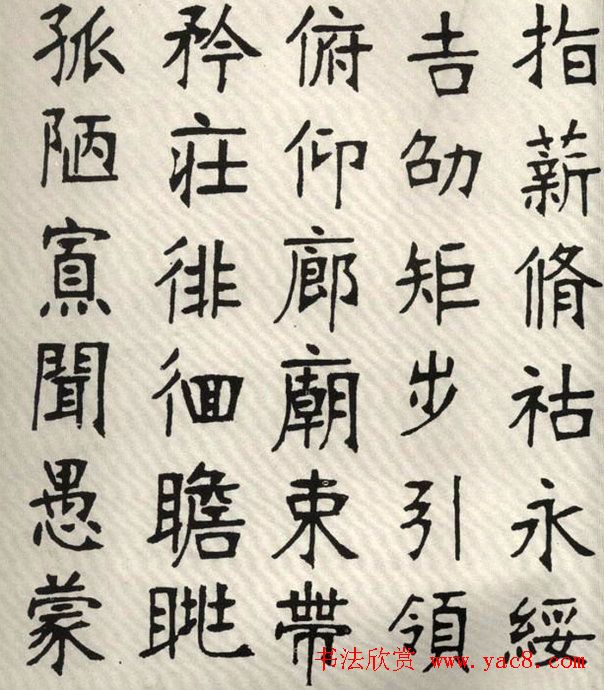 指薪脩祜永綏
吉劭矩步引領
俯仰廊廟束帶
矜莊徘徊瞻眺
孤陋寡聞愚蒙
书法欣赏 www.yac8.com